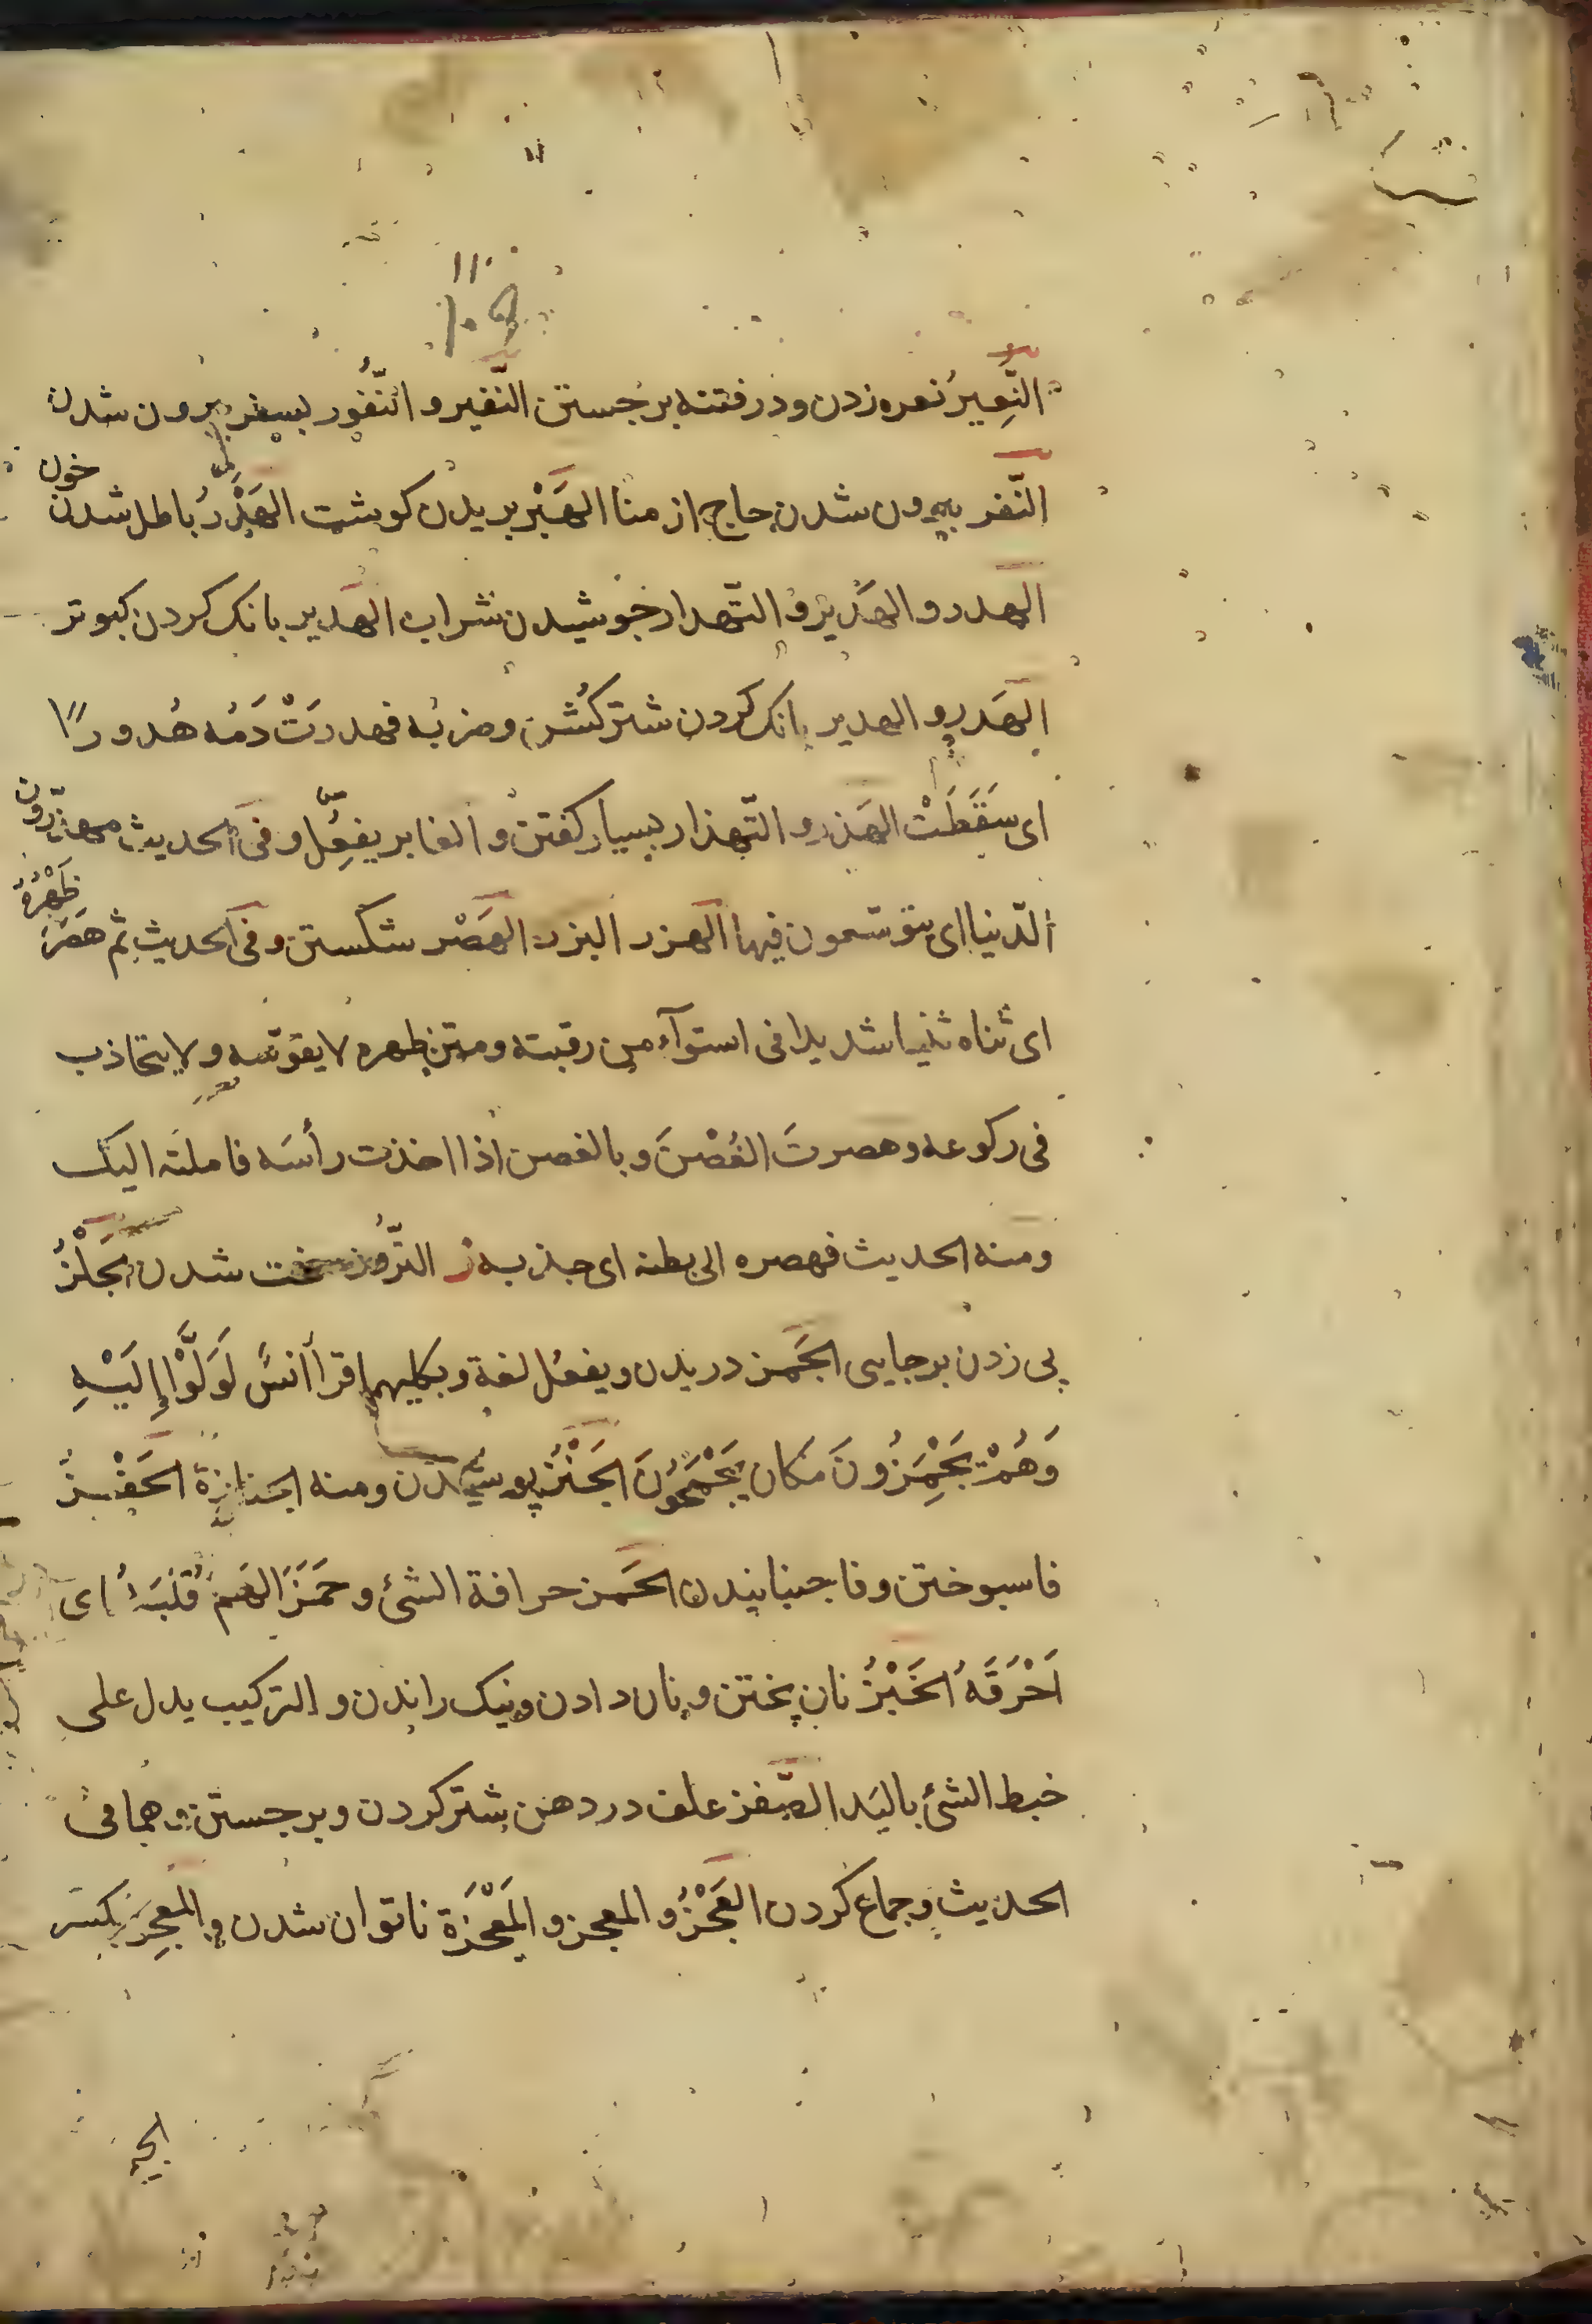 النَّعِيرُ نعره زدن ودر فتنه برجستن النَّفير و النُّفُور بسفر بيرون شدن
النَّفر بيرون شدن حاج از منا الهَبْر بريدن كوشت الهَدْرُ باطل شدن خون
الهدر و الهَدير و التّهدار جوشيدن شراب الهَدير بانك كردن كبوتر
الهَدر و الهدير بانك كردن شتر كُشن وضربه فهدرتْ دَمُه هُدورًا
اى سَقَطَتْ الهَذر و التّهذار بسيار كفتن و الغابر يفعِل و فى الحديث مهذّرون
الدّنيا اى يتوسّمون فيها الهزر البزر الهَصْر شكستن و فى الحديث ثم هصَرَ ظَهْرَهُ
اى ثناه ثنيا شديدا فى استوآء من رقبته ومتن ظهره لا يقوّسه و لا يتحاذب
فى ركوعه وهصرتَ الغُصْنَ و بالغصن اذا اخذت رأسَه فاملتَه اليك
ومنه الحديث فهصره الى بطنه اى جذبه ز التّرُوز سخت شدن الجَلْزُ
پى زدن بر جايى الجَمز دريدن و يفعُل لغة و بكليهما قرأ انسٌ لَوَلَّوْا إِلَيْهِ
وَهُمْ يَجْمِزُونَ مَكان يَجْمَحُونَ الجَنْزُ پوشيدن ومنه الجنازة الحَفْزُ
فاسبوختن و فاجنبانيدن الحَمز حرافة الشئ و حَمَزَ الهَمُّ قَلْبَهُ اى
اَحْرَقَهُ الخَبْزُ نان پختن و نان دادن و نيك راندن و التركيب يدل على
خبط الشئ باليَد الضَّفز علف در دهن شتر كردن و برجستن و هما فى
الحديث و جماع كردن العَجْزُ و المعجز و المَعْجَزَة ناتوان شدن و المَعجِزَ بكسر